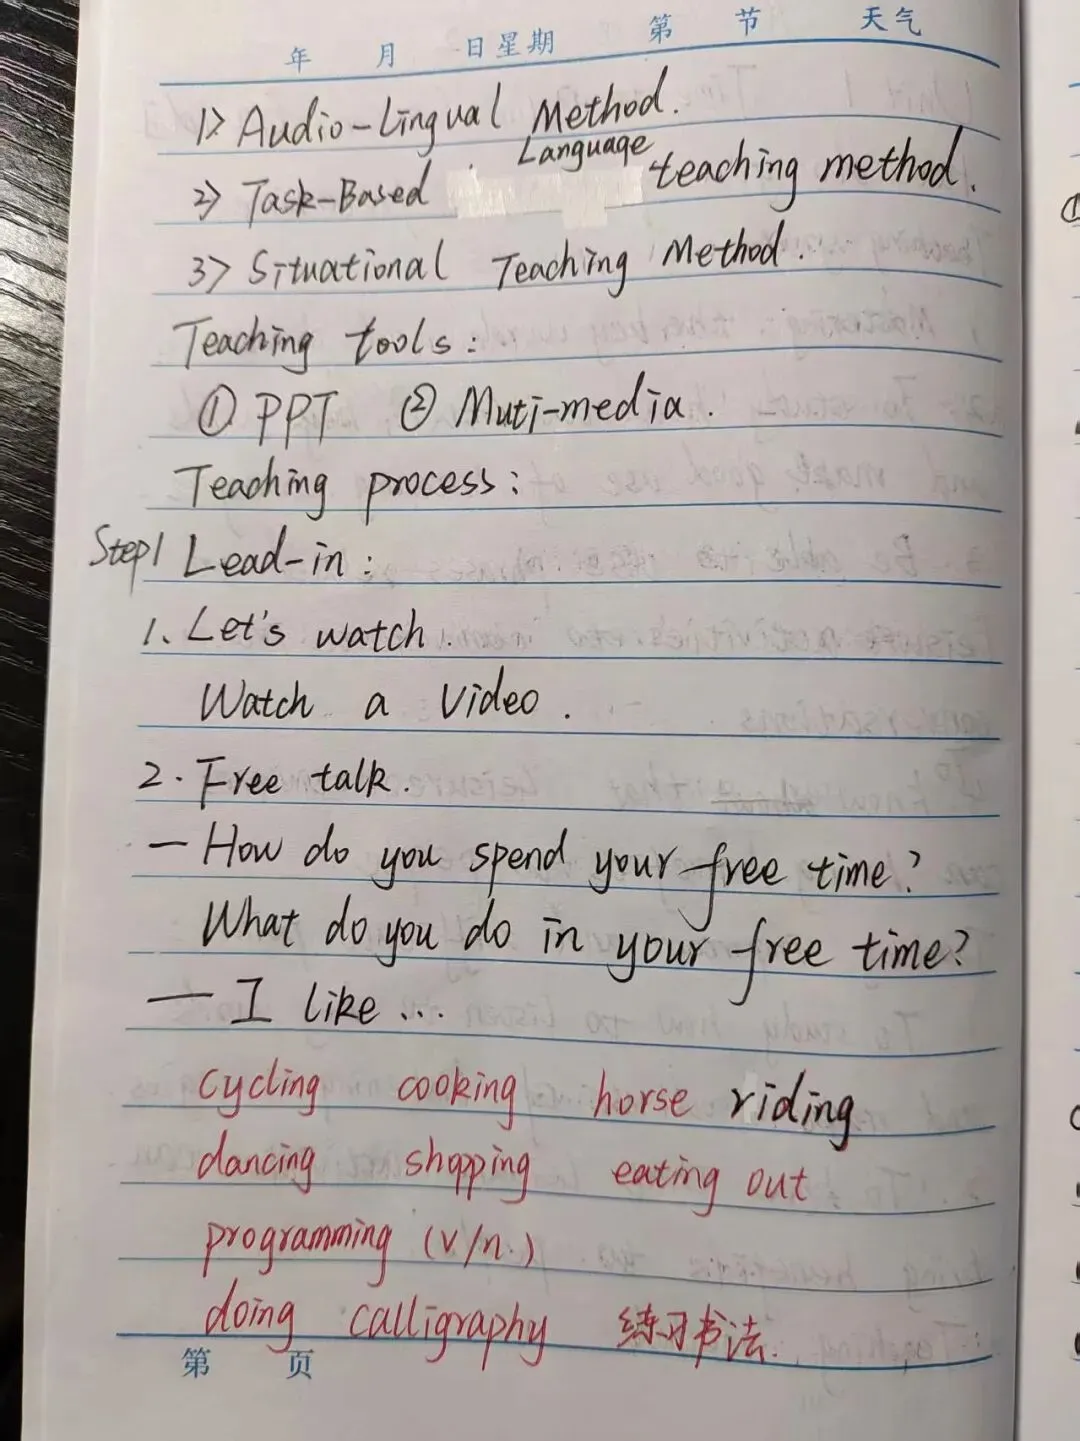 年 月 日星期 第 节 天气
1> Audio-Lingual Method.
2> Task-Based Language teaching method.
3> Situational Teaching Method.
Teaching tools:
① PPT ② Muti-media.
Teaching process:
Step1 Lead-in:
1. Let's watch.
Watch a Video.
2. Free talk.
— How do you spend your free time?
What do you do in your free time?
— I like ...
cycling cooking horse riding
dancing shopping eating out
programming (v/n.)
doing calligraphy 练习书法.
第 页